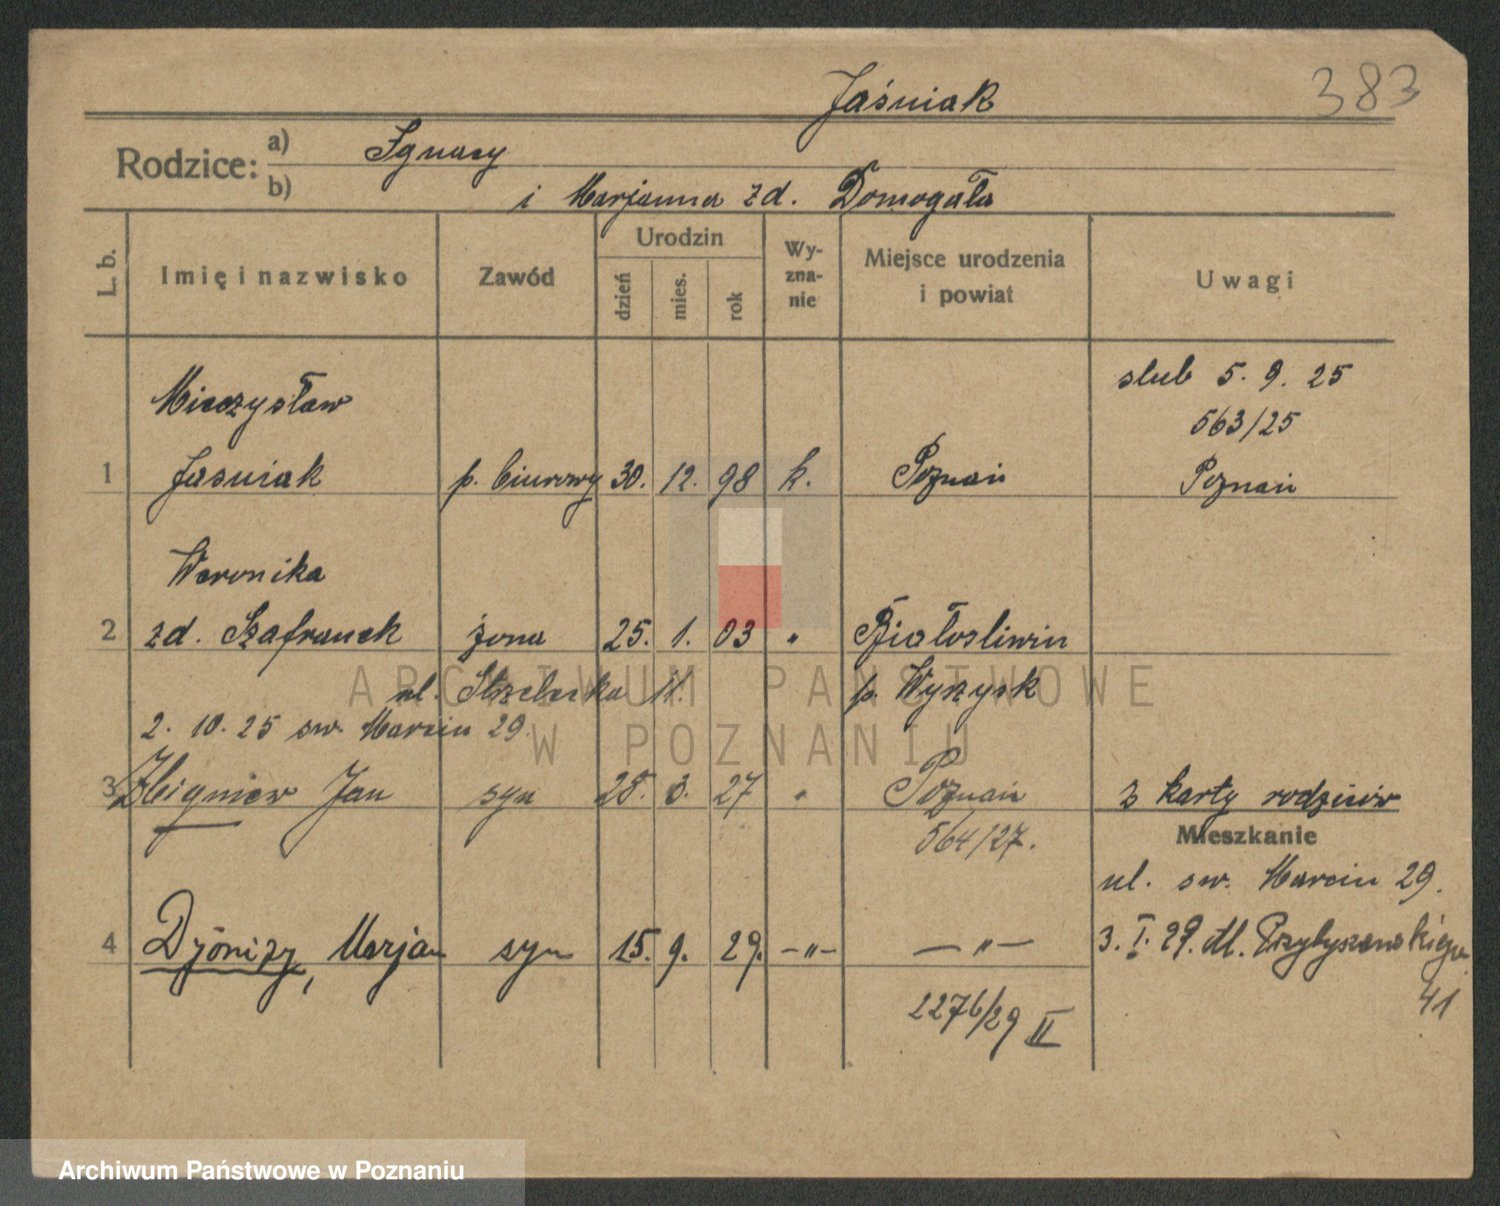 Jaśniak 383
Rodzice: a) Ignacy
b) i Marjanna zd. Domogała
L. b. Imię i nazwisko Zawód Urodzin dzień mies. rok Wy-zna-nie Miejsce urodzenia i powiat Uwagi
Mieczysław slub 5. 9. 25
563/25
1 Jasniak p. biurowy 30. 12. 98 k. Poznań Poznań
Weronika
2 zd. Szafranek żona 25. 1. 03 " Białosliwin
ul. Strzelecka 11. p. Wyrzysk
2. 10. 25 sw. Marcin 29
3 Zbigniew Jan syn 28. 3. 27 " Poznań z karty rodziców
564/27. Mieszkanie
ul. sw. Marcin 29.
4 Dyonizy, Marjan syn 15. 9. 29. -"- -"- 3. I. 29. Przybyszewskiego
41
2276/29 II
ARCHIWUM PAŃSTWOWE
W POZNANIU
Archiwum Państwowe w Poznaniu